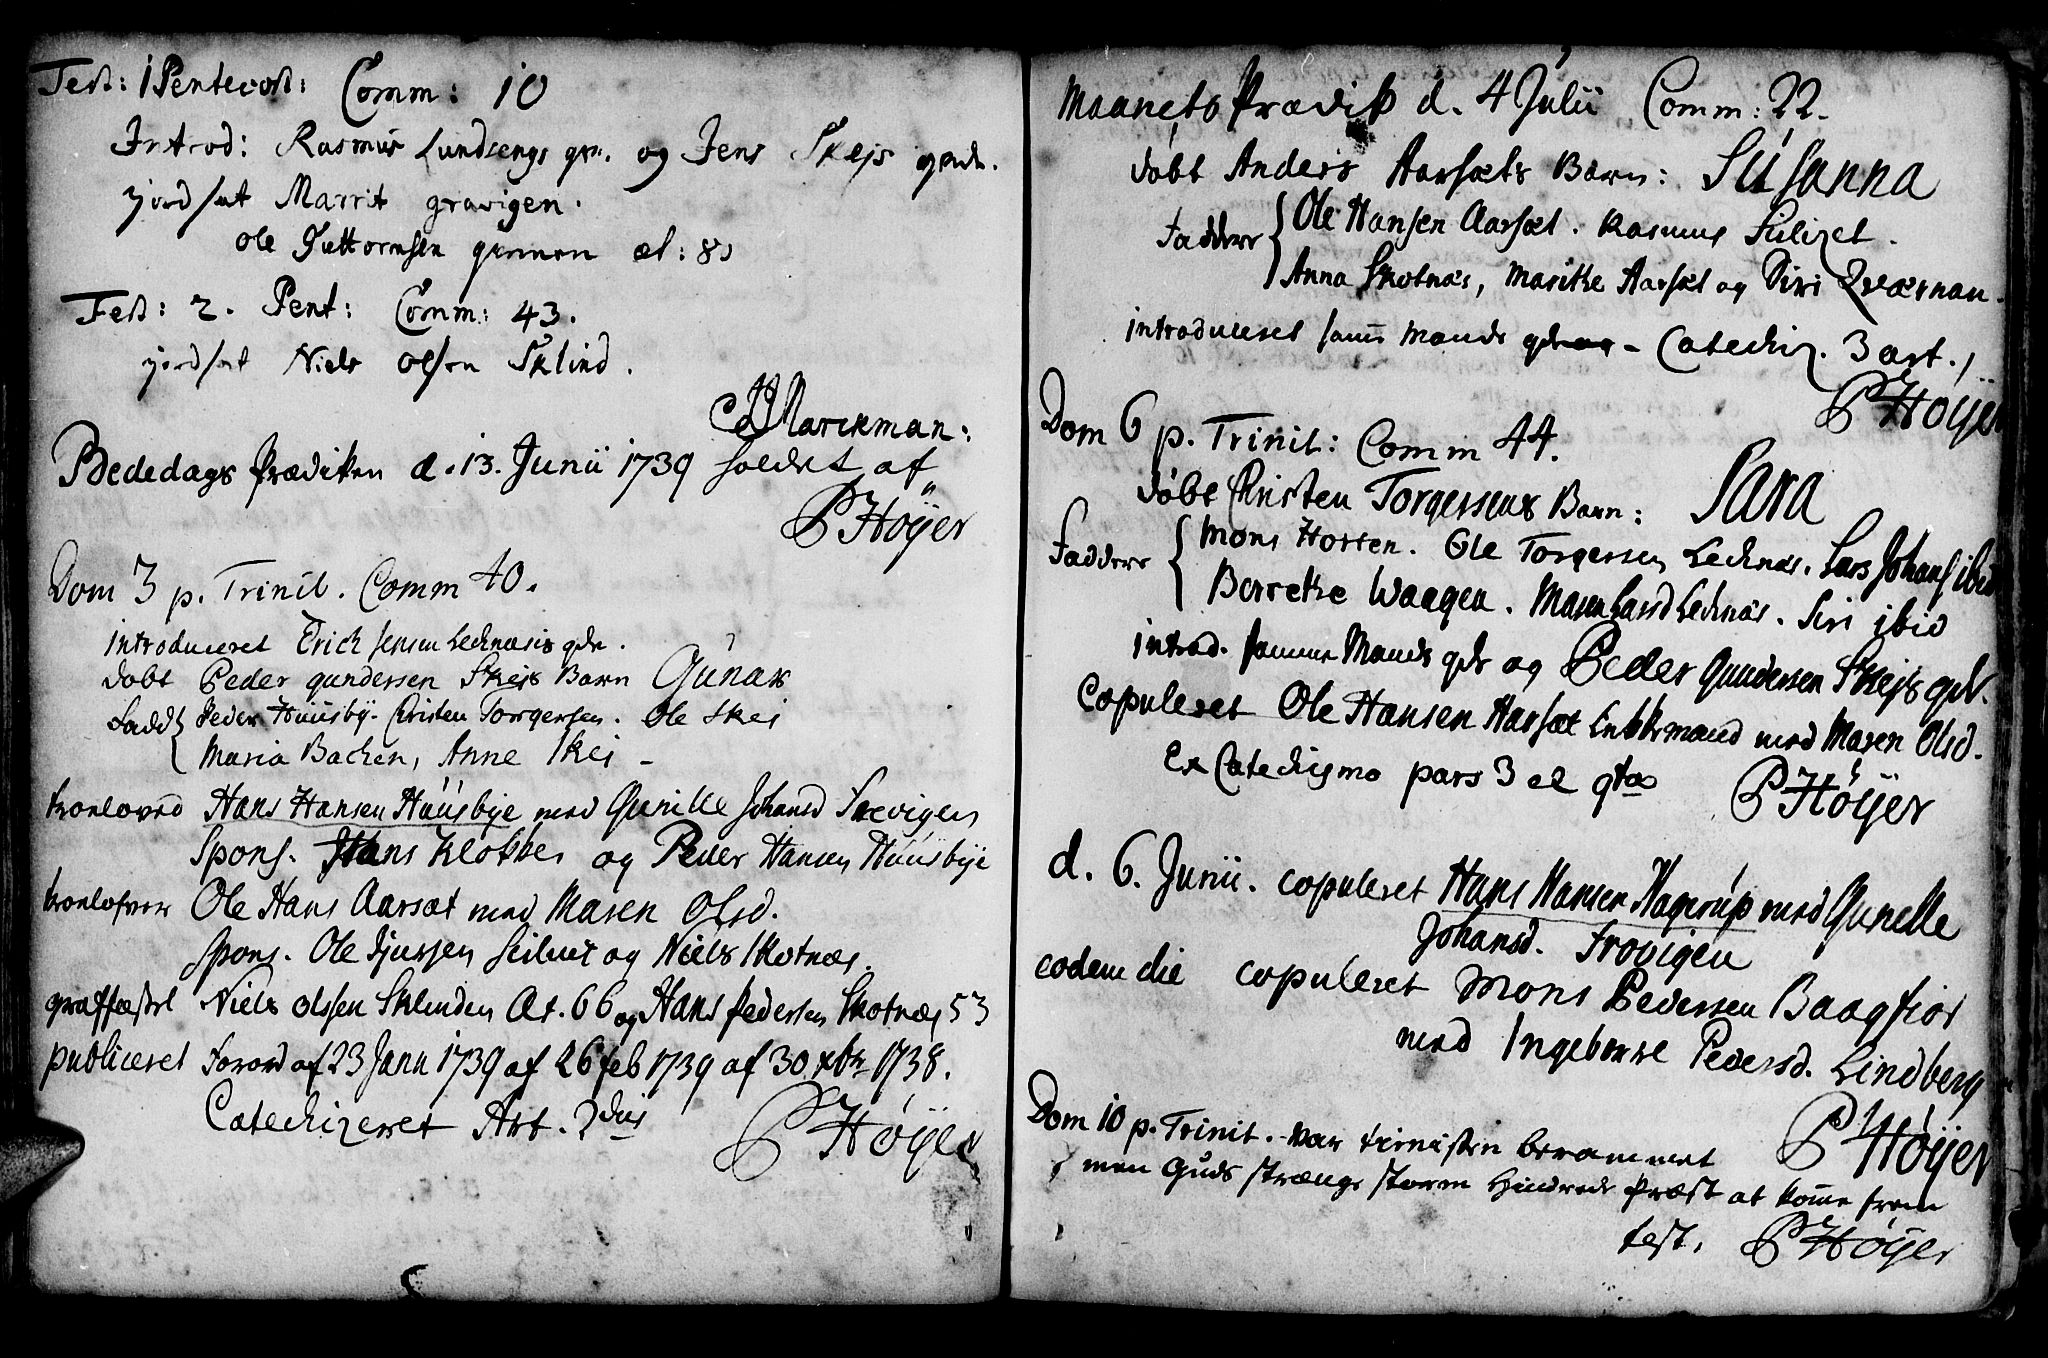 Fest: 1 Pentecost: Comm: 10
Introd: Rasmus Lundsengs qv. og Jens Skejs qvde.
jordsat Marrit gravigen.
Ole Guttormsen æt: 81
Fest: 2. Pent: Comm: 43.
jordsat Niels olsen Sklind.
Marckman:
Bededags Prædiken d. 13. Junii 1739 holdet af
P Höyer
Dom 3 p. Trinit. Comm 40.
introduceret Erich Jensen Lecknæsis qde.
döbt Peder gundersen Skejs Barn Gunar
Fadd Peder Huusby. Christen Torgersen. Ole Skej
Maria Backen, Anne Skej
troeloved Hans Hansen Huusbye med Gunille Johansd Frevigen
Spons. Hans Klokker og Peder Hansen Huusbye
troelofver Ole Hans Aarsæt med Maren Olsd.
Spons. Ole Siursen og Niels Skotnæs.
graffæstet Niels olssen Sklinden Æt. 66 og Hans Pedersen Skotnæs 53
publiceret Forord af 23 Janu 1739 af 26 feb 1739 af 30 xbr 1738.
Catechizeret Art. 2dus
P Höyer
Maanets Prædik d. 4 Julii Comm: 22.
döbt Anders Aarsæts Barn: Susanna
Faddere Ole Hansen Aarsæt. Rasmus
Anna Skotnæs, Maritte Aarsæt og Siri Qværnan.
introduceret samme mands - Catechiz. 3 art.
P Höyer
Dom 6 p. Trinit: Comm 44.
döbt Christen Torgersens Barn: Sara
Faddere Mons Horten. Ole Torgersen Lecknæs. Lars Johans ibid
Berrethe Waagen. Maren Lecknæs. Siri ibid
introd. samme Mands qde og Peder Gundersen Skejs qde.
Copuleret Ole Hansen Aarsæt Enkkemand med Maren Olsd.
Ex Catechismo pars 3 et qta
P Höyer
d. 6. Junii. copuleret Hans Hansen Hagerup med Gunelle
Johansd. Frovigen
eodem die copuleret Mons Pedersen Baagfiord
med Ingeborre Pedersd. Lindberg
P Höyer
Dom 10 p. Trinit. var tienisten berammet
men Guds strænge storm hindrede Præst at komme frem
test. P Höyer